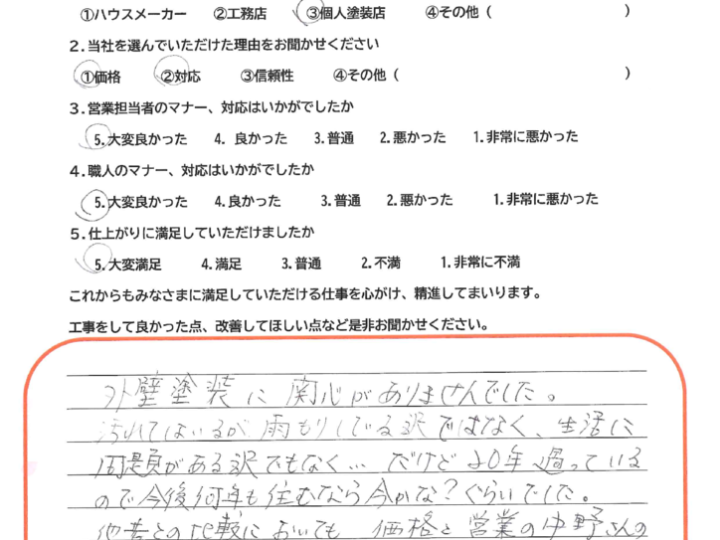 ①ハウスメーカー ②工務店 ③個人塗装店 ④その他（ ）
2.当社を選んでいただけた理由をお聞かせください
①価格 ②対応 ③信頼性 ④その他（ ）
3.営業担当者のマナー、対応はいかがでしたか
5.大変良かった 4. 良かった 3.普通 2.悪かった 1.非常に悪かった
4.職人のマナー、対応はいかがでしたか
5.大変良かった 4.良かった 3.普通 2.悪かった 1.非常に悪かった
5.仕上がりに満足していただけましたか
5.大変満足 4.満足 3.普通 2.不満 1.非常に不満
これからもみなさまに満足していただける仕事を心がけ、精進してまいります。
工事をして良かった点、改善してほしい点など是非お聞かせください。
外壁塗装に関心がありませんでした。
汚れてはいるが雨もりしている訳ではなく、生活に
問題がある訳でもなく… だけど20年過っている
ので今後何年も住むなら今かな？ぐらいでした。
他者との比較においても、価格と営業の中野さんの